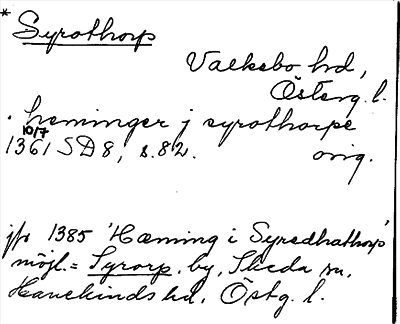 * Syrothorp
Valkebo hd,
Österg. l.
. hæminger j syrothorpe
10/7
1361 SD 8, s. 82. orig.
jfr 1385 'Hæming i Syredhathorp'
möjl. = Syrorp, by, Skeda sn,
Hanekinds hd, Östg. l.